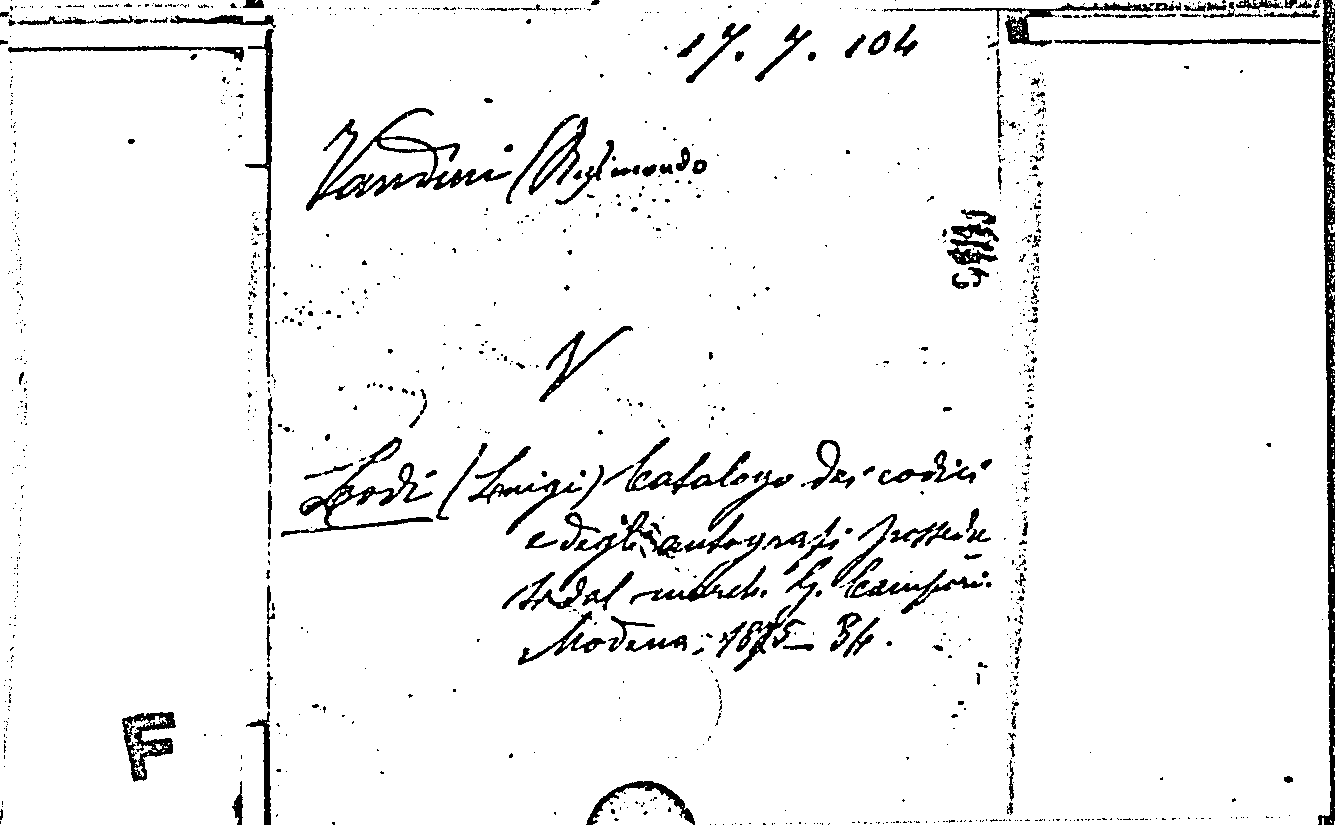 17. 7. 104
Vandini (Raimondo
V
Lodi (Luigi) Catalogo dei codici
e degli autografi possedu
ti dal march. G. Campori.
Modena. 1875–84.
F